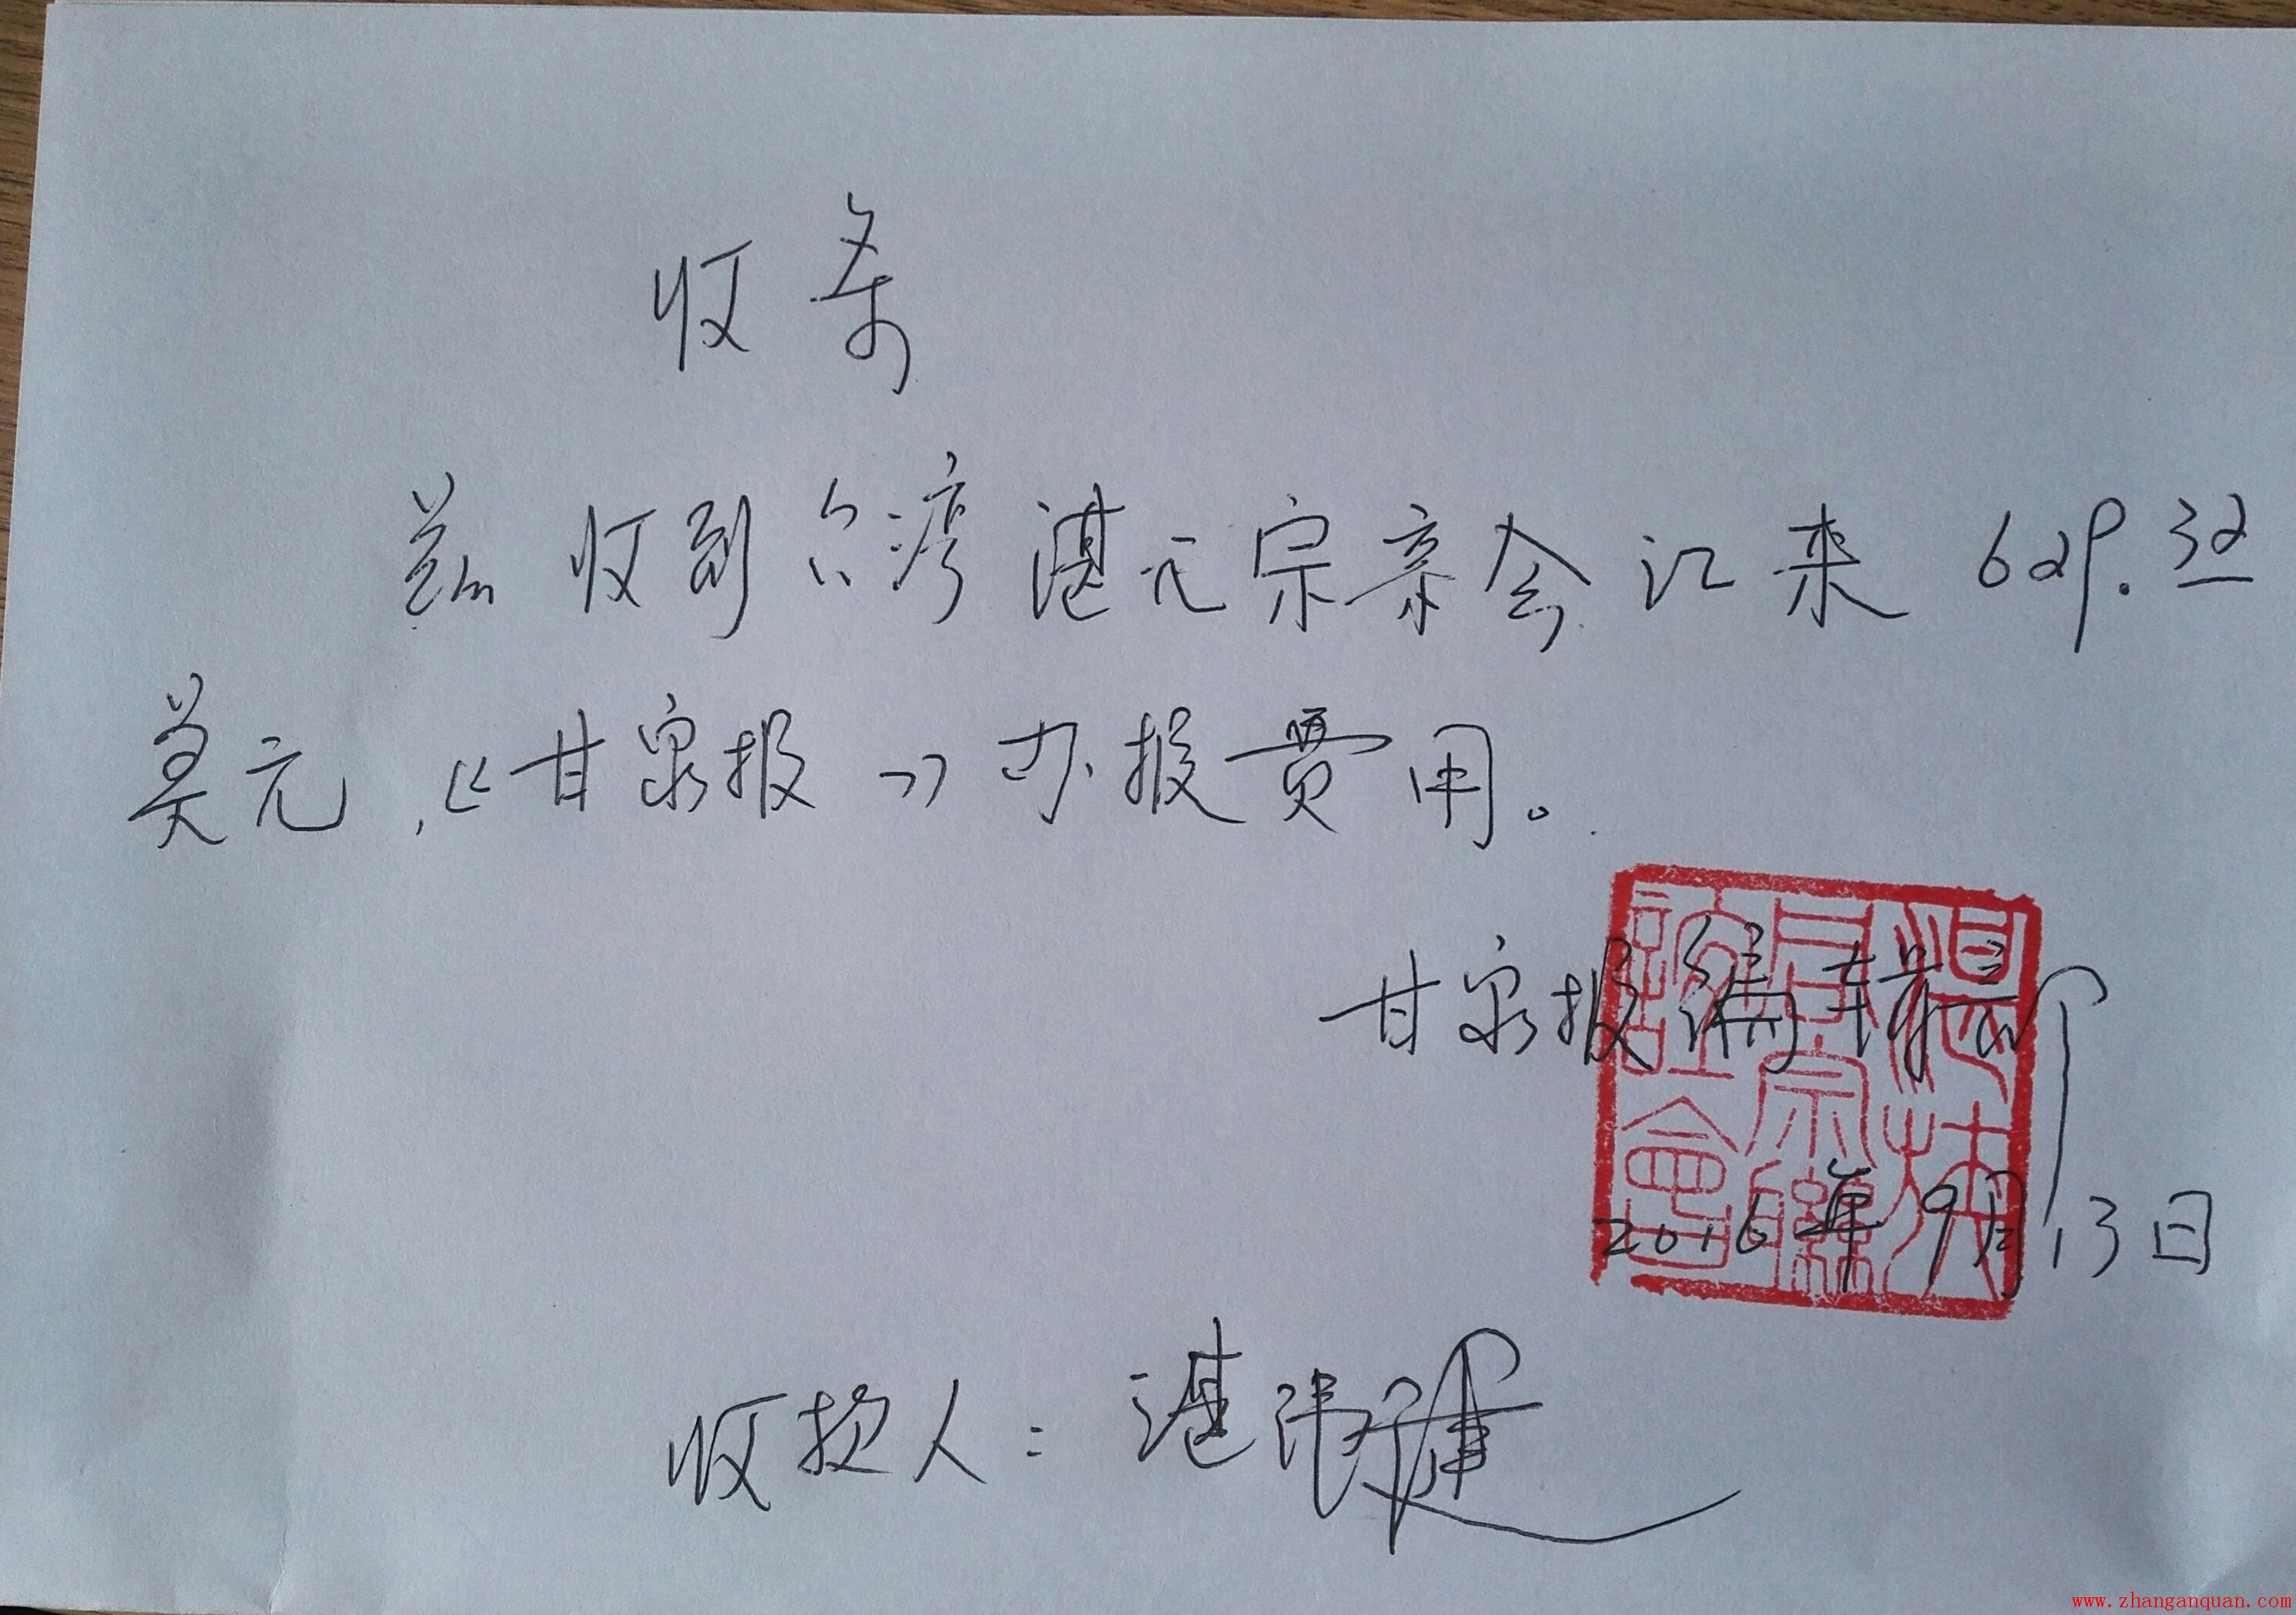 收条
兹收到台湾湛元宗亲会汇来 629.32
美元,《甘泉报》办报费用。
甘泉报编辑部
2016年9月13日
收款人：湛
www.zhanganquan.com